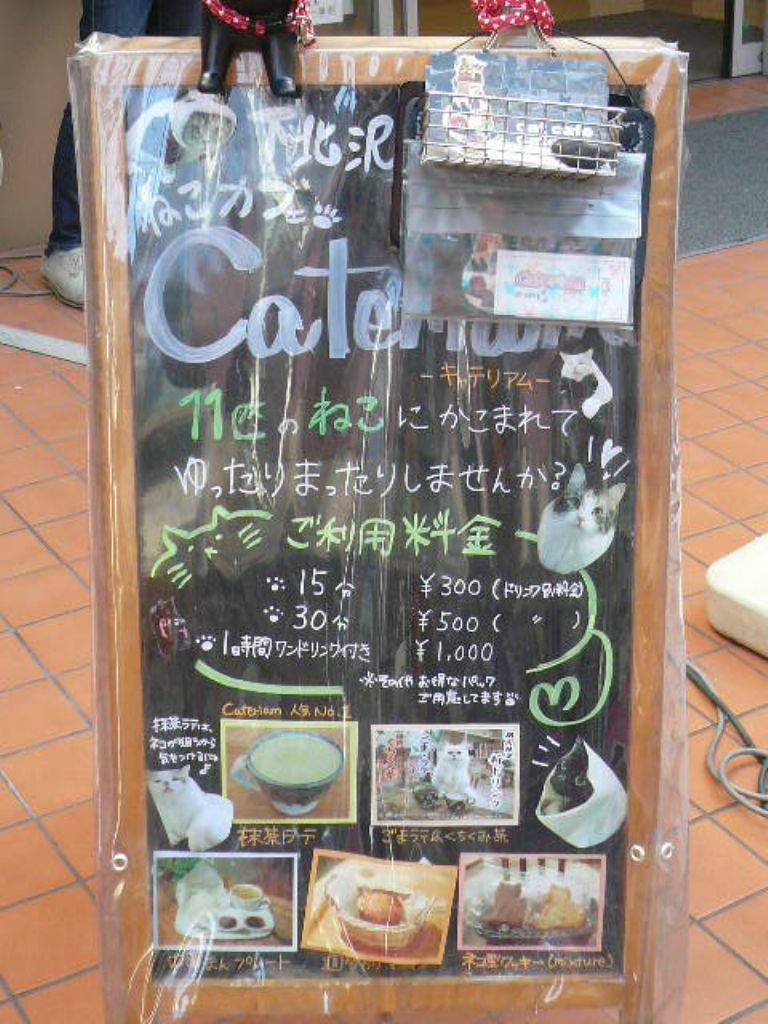 下北沢
cat cafe
ねこカフェ
Cateriam
-キャテリアム-
11匹のねこにかこまれて
ゆったりまったりしませんか?
ご利用料金
15分 ¥300(ドリンク別料金)
30分 ¥500( 〃 )
1時間ワンドリンク付き ¥1,000
※その他お得なパック
ご用意してます
Cateriam 人気No.1
抹茶ラテは、
ネコが狙うから
気をつけるにゃ♪
抹茶ラテ
ごまラテ&くちくみ茶
プレート
ネコ型クッキー(mixture)